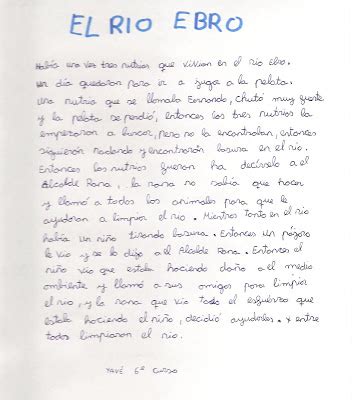 EL RIO EBRO
Había una vez tres nutrias que vivian en el río Ebro.
Un día quedaron para ir a juga a la pelota.
Una nutria que se llamaba Fernando, Chutó muy fuerte
y la pelota se perdió, entonces las tres nutrias la
empezaron a buscar, pero no la encontraban, entonces
siguieron nadando y encontrarón basura en el río.
Entonces las nutrias fueron ha decirselo a el
Alcalde Rana, la rana no sabía que hacer
y llamó a todos los animales para que le
ayudaran a limpiar el rio. Mientras tanto en el río
había un niño tirando basura. Entonces un pájaro
le vio y se lo dijo a el Alcalde Rana. Entonces el
niño vio que estaba haciendo daño a el medio
ambiente y llamó a sus amigos para limpiar
el rio, y la rana que vio todo el esfuerzo que
estaba haciendo el niño, decidió ayudarles. Y entre
todos limpiaron el río.
6º curso